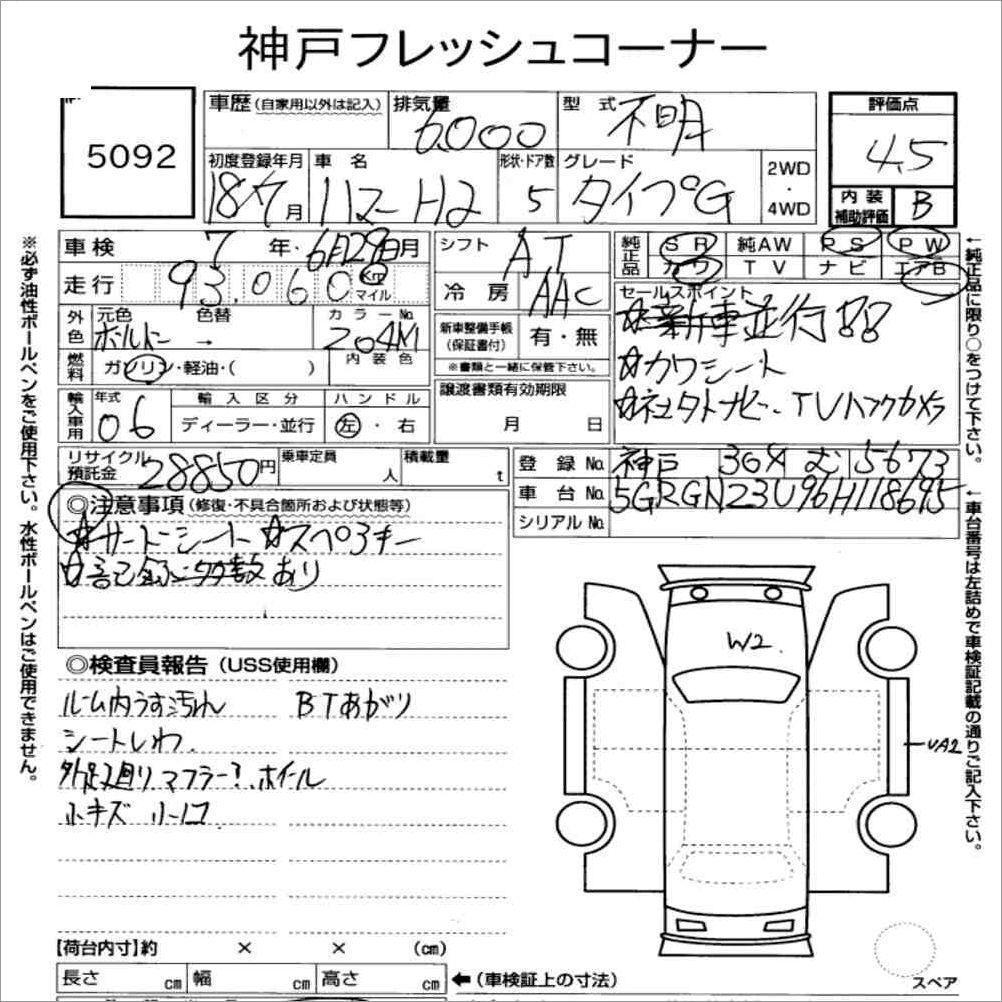 神戸フレッシュコーナー
5092
車歴 (自家用以外は記入) 排気量 6000 型式 不明
評価点 4.5
初度登録年月 18.7月 車名 ハマーH2 形状・ドア数 5 グレード タイプG 2WD・4WD
内装補助評価 B
車検 7年 6月29日月 シフト AT
走行 93.060 Km マイル 冷房 AAC
純正品 SR 純AW PS PW
カワ TV ナビ エアB
外色 元色 ボルドー 色替 → カラーNo. 204M
内装色
燃料 ガソリン・軽油・( )
新車整備手帳(保証書付) 有・無
※書類と一緒に保管下さい。
セールスポイント
☆新車並行!!
☆カワシート
☆社外ナビ. TVバックカメラ
輸入車用 年式 06 輸入区分 ディーラー・並行 ハンドル 左・右
譲渡書類有効期限 月 日
リサイクル預託金 28850円 乗車定員 人 積載量 t
登録No. 神戸 30 む 5673
車台No. 5GRGN23U96H118695
シリアルNo.
◎注意事項 (修復・不具合箇所および状態等)
☆サードシート ☆スペアキー
☆記録 多数あり
◎検査員報告 (USS使用欄)
ルーム内うす汚れ BTあがり
シートしわ
外 足廻り マフラー ホイール
小キズ 小凹
W2
UA2
【荷台内寸】約 × × (cm)
長さ cm 幅 cm 高さ cm ←(車検証上の寸法)
スペア
※必ず油性ボールペンをご使用下さい。水性ボールペンはご使用できません。
←純正品に限り○をつけて下さい。
←車台番号は左詰めで車検証記載の通りご記入下さい。